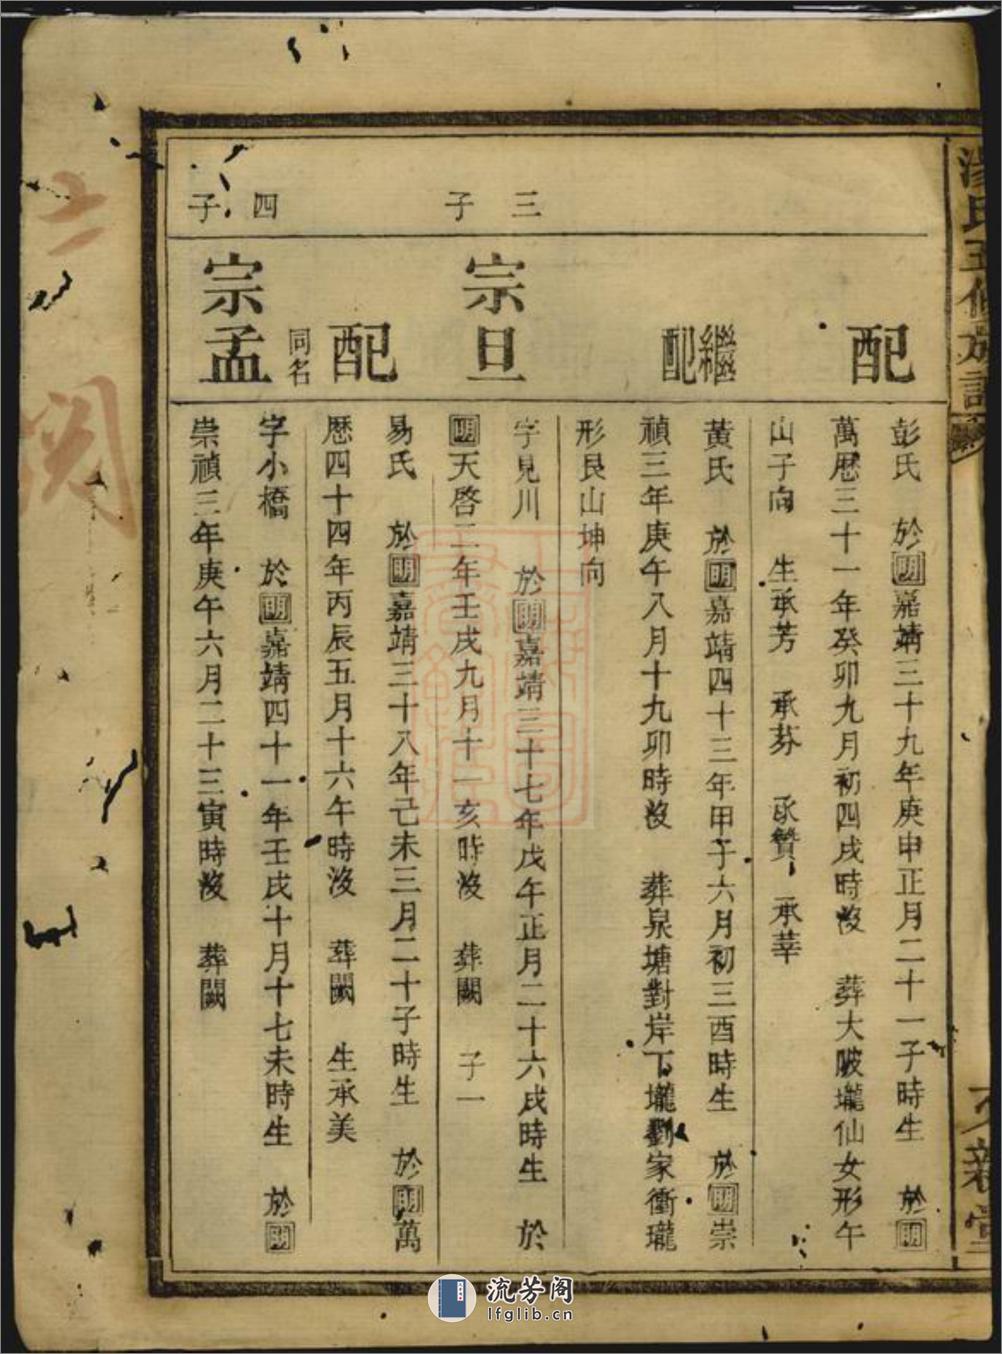 氏五修族譜
新堂
配
彭氏　於明嘉靖三十九年庚申正月二十一子時生　於明
萬歷三十一年癸卯九月初四戌時沒　葬大陂壠仙女形午
山子向　生承芳　承芬　承贊　承莘
繼配
黃氏　於明嘉靖四十三年甲子六月初三酉時生　於明崇
禎三年庚午八月十九卯時沒　葬泉塘對岸下壠劉家衝瓏
形艮山坤向
三子
宗旦
字見川　於明嘉靖三十七年戊午正月二十六戌時生　於
明天啓二年壬戌九月十一亥時沒　葬闕　子一
配
易氏　於明嘉靖三十八年己未三月二十子時生　於明萬
歷四十四年丙辰五月十六午時沒　葬闕　生承美
四子
宗孟
同名
字小橋　於明嘉靖四十一年壬戌十月十七未時生　於明
崇禎三年庚午六月二十三寅時沒　葬闕
流芳阁
lfglib.cn